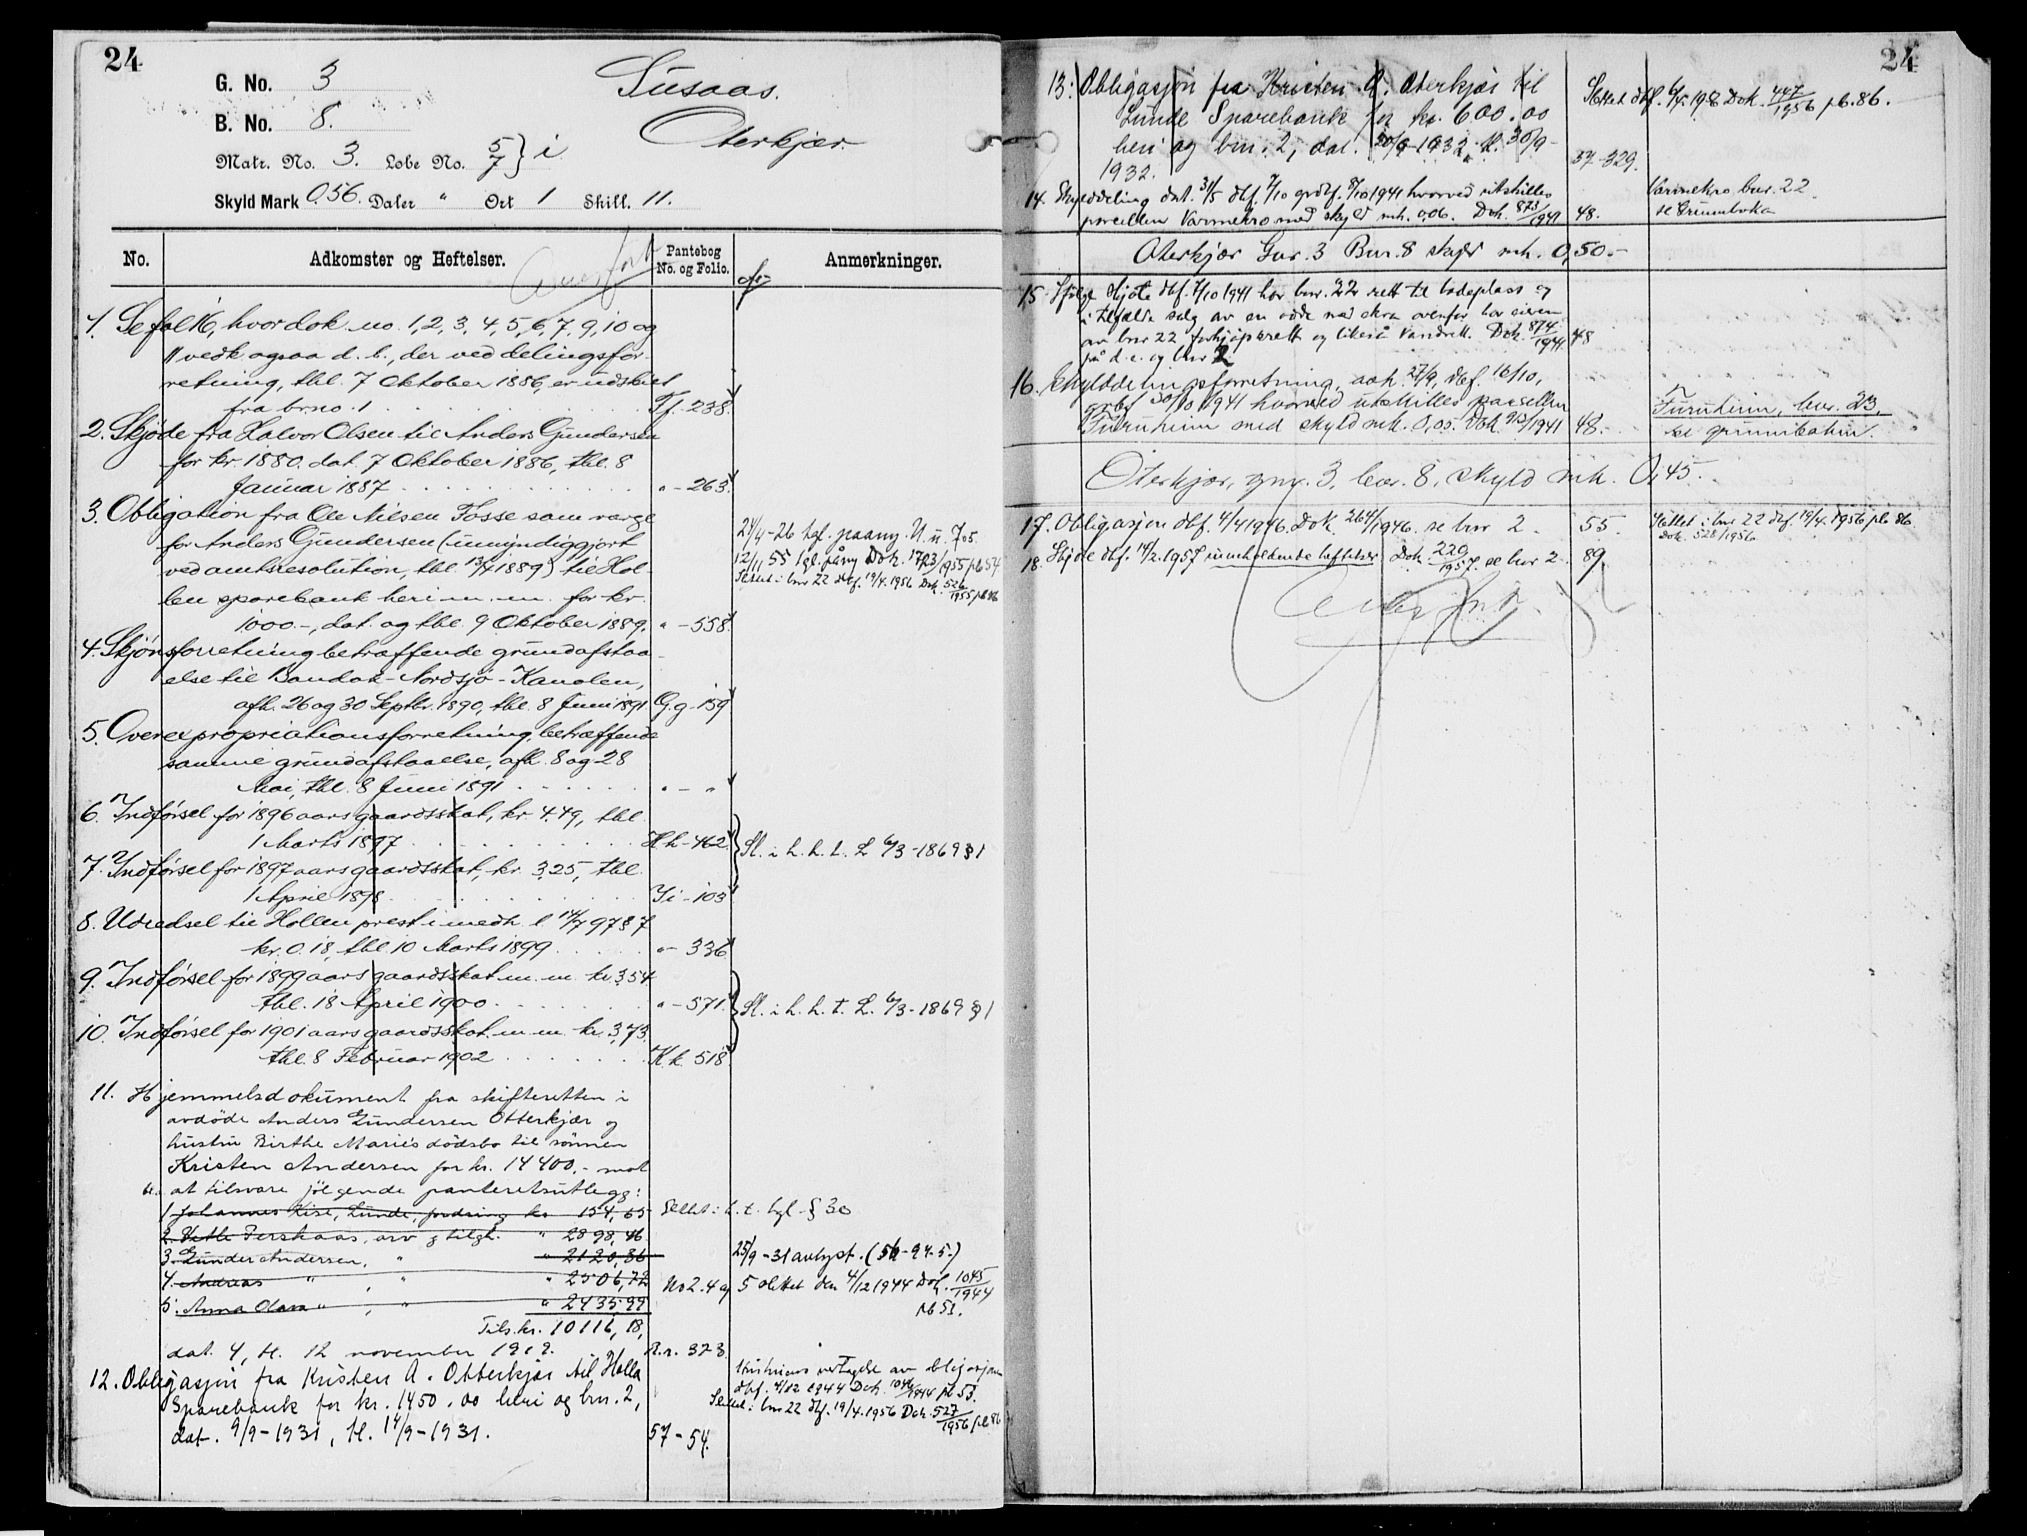 24
G. No. 3
B. No. 8.
Matr. No. 3. Løbe No. 5/7 } i
Skyld Mark 0.56. Daler " Ort 1 Skill. 11.
Susaas.
Oterkjær.
No.
Adkomster og Heftelser.
Pantebog
No. og Folio.
Anmerkninger.
Overført
1. Se fol 16, hvor dok. no. 1, 2, 3, 4, 5, 6, 7, 9, 10 og
11 vedk ogsaa d. b., der ved delingsfor-
retning, thl. 7 Oktober 1886, er udskilt
fra brno. 1 Ff. 238.
2. Skjøde fra Halvor Olsen til Anders Gundersen
for kr. 1880. dat. 7 Oktober 1886, thl. 8
Januar 1887 " - 263.
3. Obligation fra Ole Nilsen Fosse som værge
for Anders Gundersen (umyndiggjort
ved amtsresolution, thl. 1889) til Hol-
len sparebank heri m. m. for kr.
1000.-, dat. og thl. 9 Oktober 1889. " - 558.
24/4-26 tgl. paany. U. u. 705.
12/11 55 tgl. påny Dok. 1723/1955 pb 84
Slettet i bnr 22 dbf. 19/4. 1956 Dok. 526/1955 pb 86
4. Skjønsforretning betræffende grundafstaa-
else til Bandak-Nordsjø-Kanalen,
afh. 26 og 30 Septbr. 1890, thl. 8 Juni 1891 G.g - 159
5. Overexpropriationsforretning, betræffende
samme grundafstaaelse, afh. 8 og 28
Mai, thl. 8 Juni 1891 " - "
6. Indførsel for 1896 aars gaardsskat, kr. 4.49, thl.
1 Marts 1897 H h - 462
7. Indførsel for 1897 aars gaardsskat, kr. 3,25, thl.
1 April 1898 I i - 103
Sl. i h. h. t. L. 6/3 - 1869 § 1
8. Udredsel til Hollen prest i medh. l 14/7 97 § 7
kr. 0.18, thl 10 Marts 1899 " - 336
9. Indførsel for 1899 aars gaardsskat m. m. kr 3,54
thl. 18 April 1900 " - 571.
10. Indførsel for 1901 aars gaardsskat m. m. kr. 3,73
thl. 8 Februar 1902 K k. 518
Sl. i h. h. t. L. 6/3 - 1869 § 1
11. Hjemmelsdokument fra skifteretten i
avdøde Anders Gundersen Otterkjær og
hustru Birthe Maries dødsbo til sønnen
Kristen Andersen for kr. 14400.- mot
at tilsvare følgende panteretsutlegg:
1 Johannes Kise, Lunde, fordring kr 154,65 Slettet i h. t. tgl. § 30
2. Ketle Pershaas, arv g tilgh. " 2898,46
3. Gunder Andersen, " " 2120,36 25/9 - 31 avlyst. (56-94-5.)
4. Andreas " , " " 2506,72 No 2. 4 og 5 slettet den 4/12 1944 Dok. 1045/1944
5. Anna Olava " , " " 2435,99 pb 53.
Tils. kr. 10116,18,
dat. 4, tl. 12 november 1919. R.r. 323
12. Obligasjon fra Kristen A. Otterkjær til Holla
Sparebank for kr. 1450.00 heri og bnr. 2,
dat. 9/9-1931, tl. 14/9-1931. 57-54.
Hustruens vedtagelse av obligasjonen
dbf. 4/12 1944 Dok. 1046/1944 pb 53.
Slettet i bnr 22 dbf. 19/4. 1956 Dok. 527/1956 pb 86
24
13: Obligasjon fra Kristen A. Oterkjær til
Lunde Sparebank for kr. 600.00
heri og bnr. 2, dat. 20/9-1932, tl. 30/9-
1932. 37-329.
Slettet dbf. 6/4. 1956 Dok. 447/1956 pb. 86.
14. Skylddeling dat. 31/5 dbf. 7/10 grdbf. 8/10 1941 hvorved utskilles
parcellen Varmekro med skyld mk. 0,06. Dok. 873/1941 48.
Varmekro bnr. 22
se Grunnboka
Oterkjær Gnr. 3 Bnr. 8 skyld mk. 0,50.-
15. Ifølge skjøte dbf. 7/10 1941 har bnr. 22 rett til badeplass og
i tilfælde salg av en odde ned ekra ovenfor har eieren
av bnr 22 forkjøpsrett og likeså vandrett. Dok. 874/1941 48
på d. e. og bnr 2
16. Skylddelingsforretning, avh. 27/9, dbf. 16/10,
grbf 30/10 1941 hvorved utskilles parsellen
Furuheim med skyld mk. 0,05. Dok. 913/1941 48.
Furuheim, bnr. 23.
se grunnboken.
Oterkjær, gnr. 3, bnr. 8, skyld mk. 0,45.
17. Obligasjon dbf. 4/4 1946. Dok 264/1946. se bnr 2. 55.
Slettet i bnr 22 dbf. 19/4. 1956 pb 86
Dok. 528/1956
18. Skjøte dbf. 14/2. 1957 inneholdende heftelser Dok. 220/1957. se bnr 2. 89
Overført